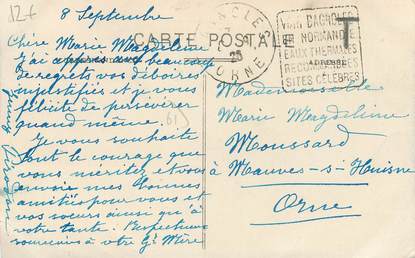 12f
8 Septembre
CARTE POSTALE
Chère Marie Magdeleine
J'ai appris avec beaucoup
de regrets vos déboires
injustifiés et je vous
félicite de persévérer
quand même.
Je vous souhaite
tout le courage que
vous méritez et vous
envoie mes bonnes
amitiés pour vous et
vos soeurs ainsi qu'à
votre tante. Respectueux
souvenirs à votre Gd Mère
ORNE
EN NORMANDIE
EAUX THERMALES
SITES CÉLÈBRES
T
ADRESSE
Mademoiselle
Marie Magdeleine
Moussard
à Mauves-s-Huisne
Orne
61